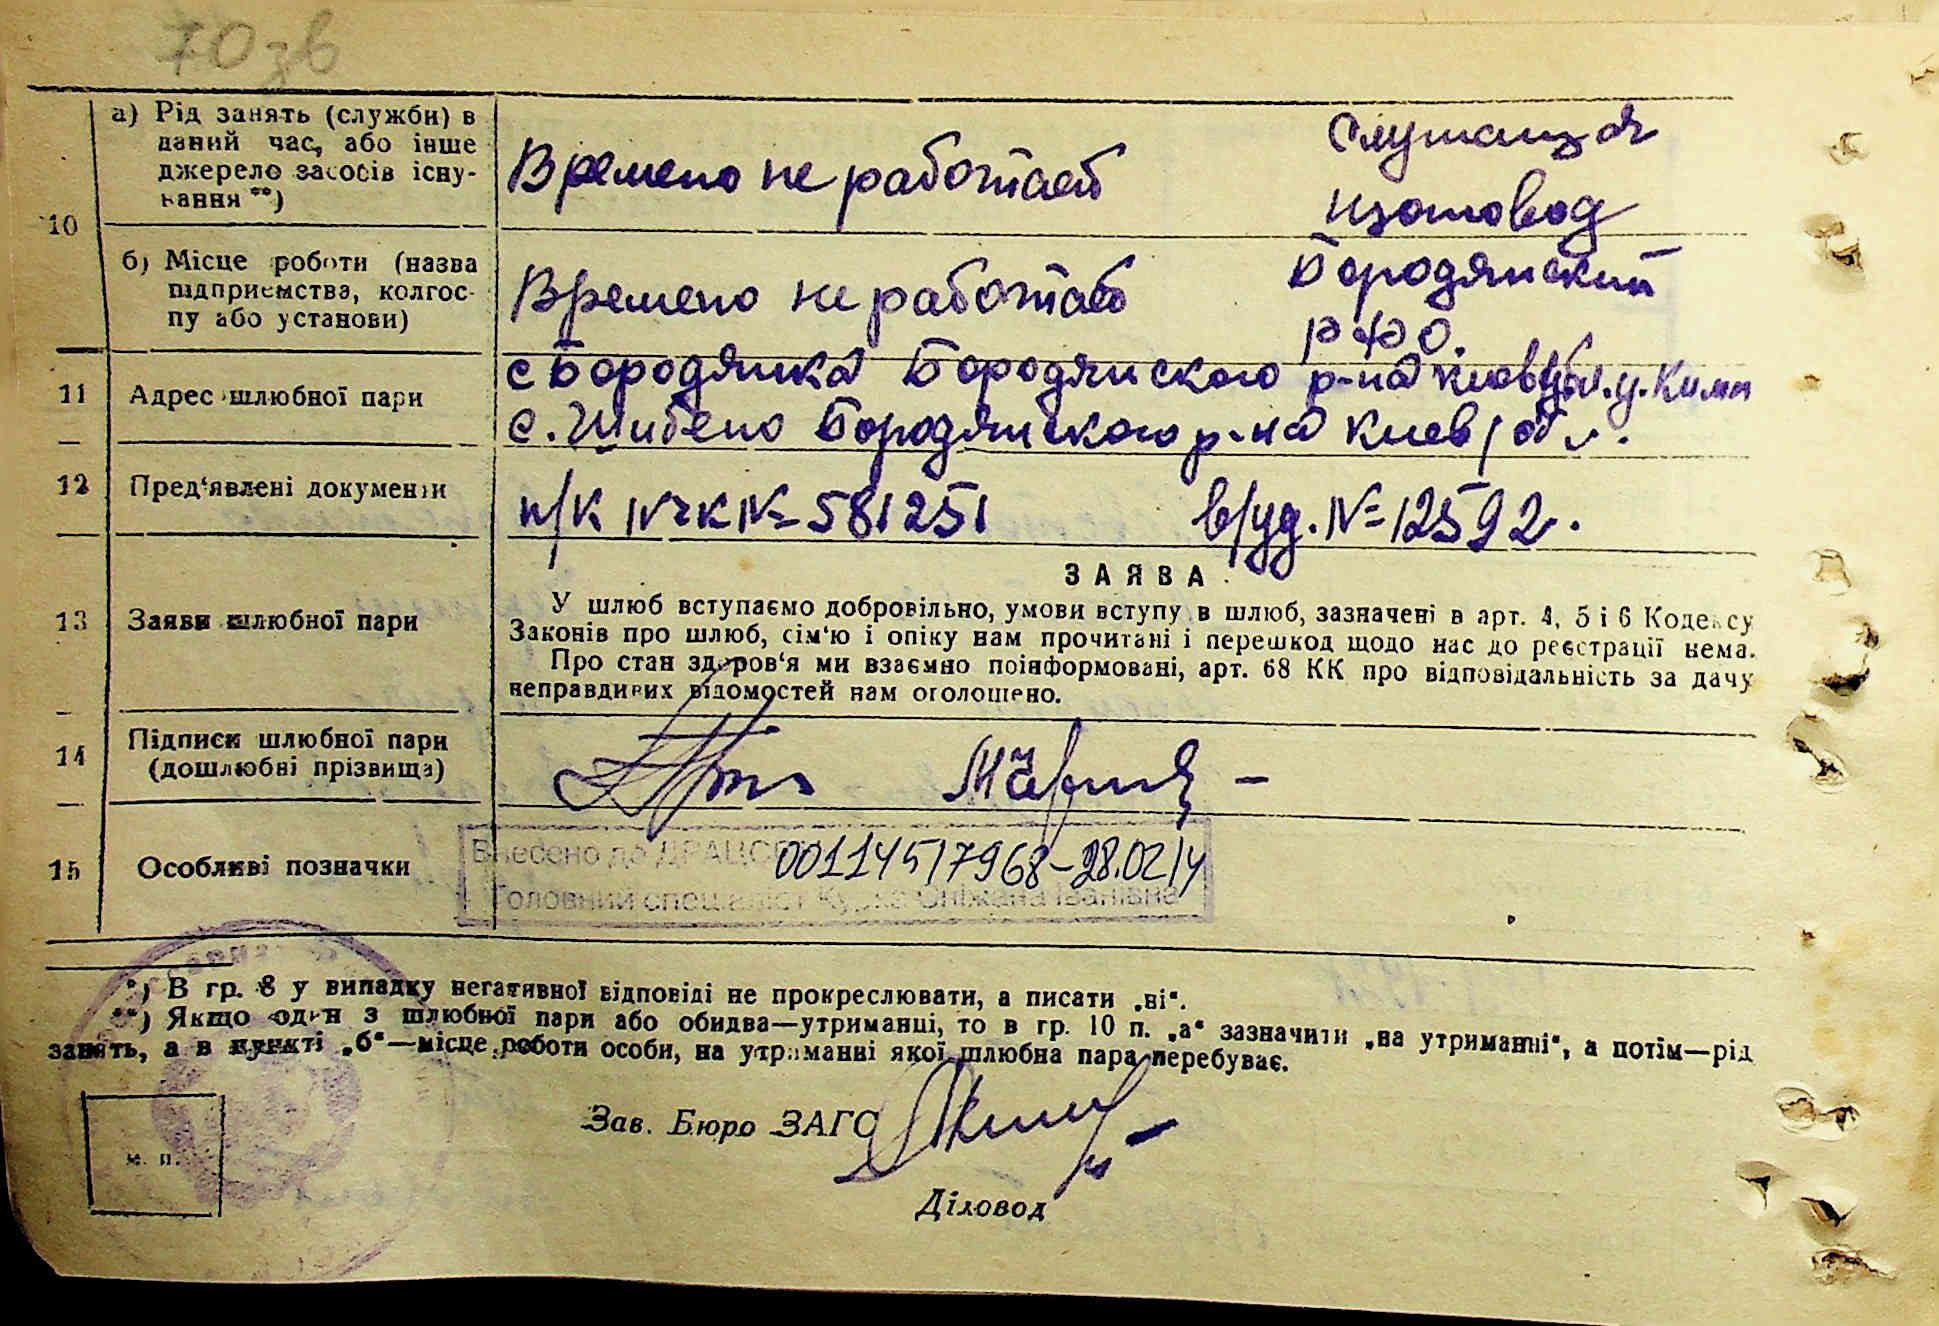 70 зв
10
а) Рід занять (служби) в
даний час, або інше
джерело засобів існу-
вання **)
Времено не работает
Служащая
щотовод
б) Місце роботи (назва
підприємства, колгос-
пу або установи)
Времено не работает
Бородянский
РФО.
11
Адрес шлюбної пари
с Бородянка Бородянского р-на
с. Шибено Бородянского р-на Киев обл.
12
Пред'явлені документи
п/к № 581251
в/уд. № 12592.
13
Заяви шлюбної пари
ЗАЯВА
У шлюб вступаємо добровільно, умови вступу в шлюб, зазначені в арт. 4, 5 і 6 Кодексу
Законів про шлюб, сім'ю і опіку нам прочитані і перешкод щодо нас до реєстрації нема.
Про стан здоров'я ми взаємно поінформовані, арт. 68 КК про відповідальність за дачу
неправдивих відомостей нам оголошено.
14
Підписи шлюбної пари
(дошлюбні прізвища)
15
Особливі позначки
Внесено до ДРАЦС 00114517968-28.02.14
Головний спеціаліст Сніжана Іванівна
*) В гр. 8 у випадку негативної відповіді не прокреслювати, а писати „ні“.
**) Якщо один з шлюбної пари або обидва—утриманці, то в гр. 10 п. „а“ зазначити „на утриманні“, а потім—рід
занять, а в пункті „б“—місце роботи особи, на утриманні якої шлюбна пара перебуває.
Зав. Бюро ЗАГС
м. п.
Діловод